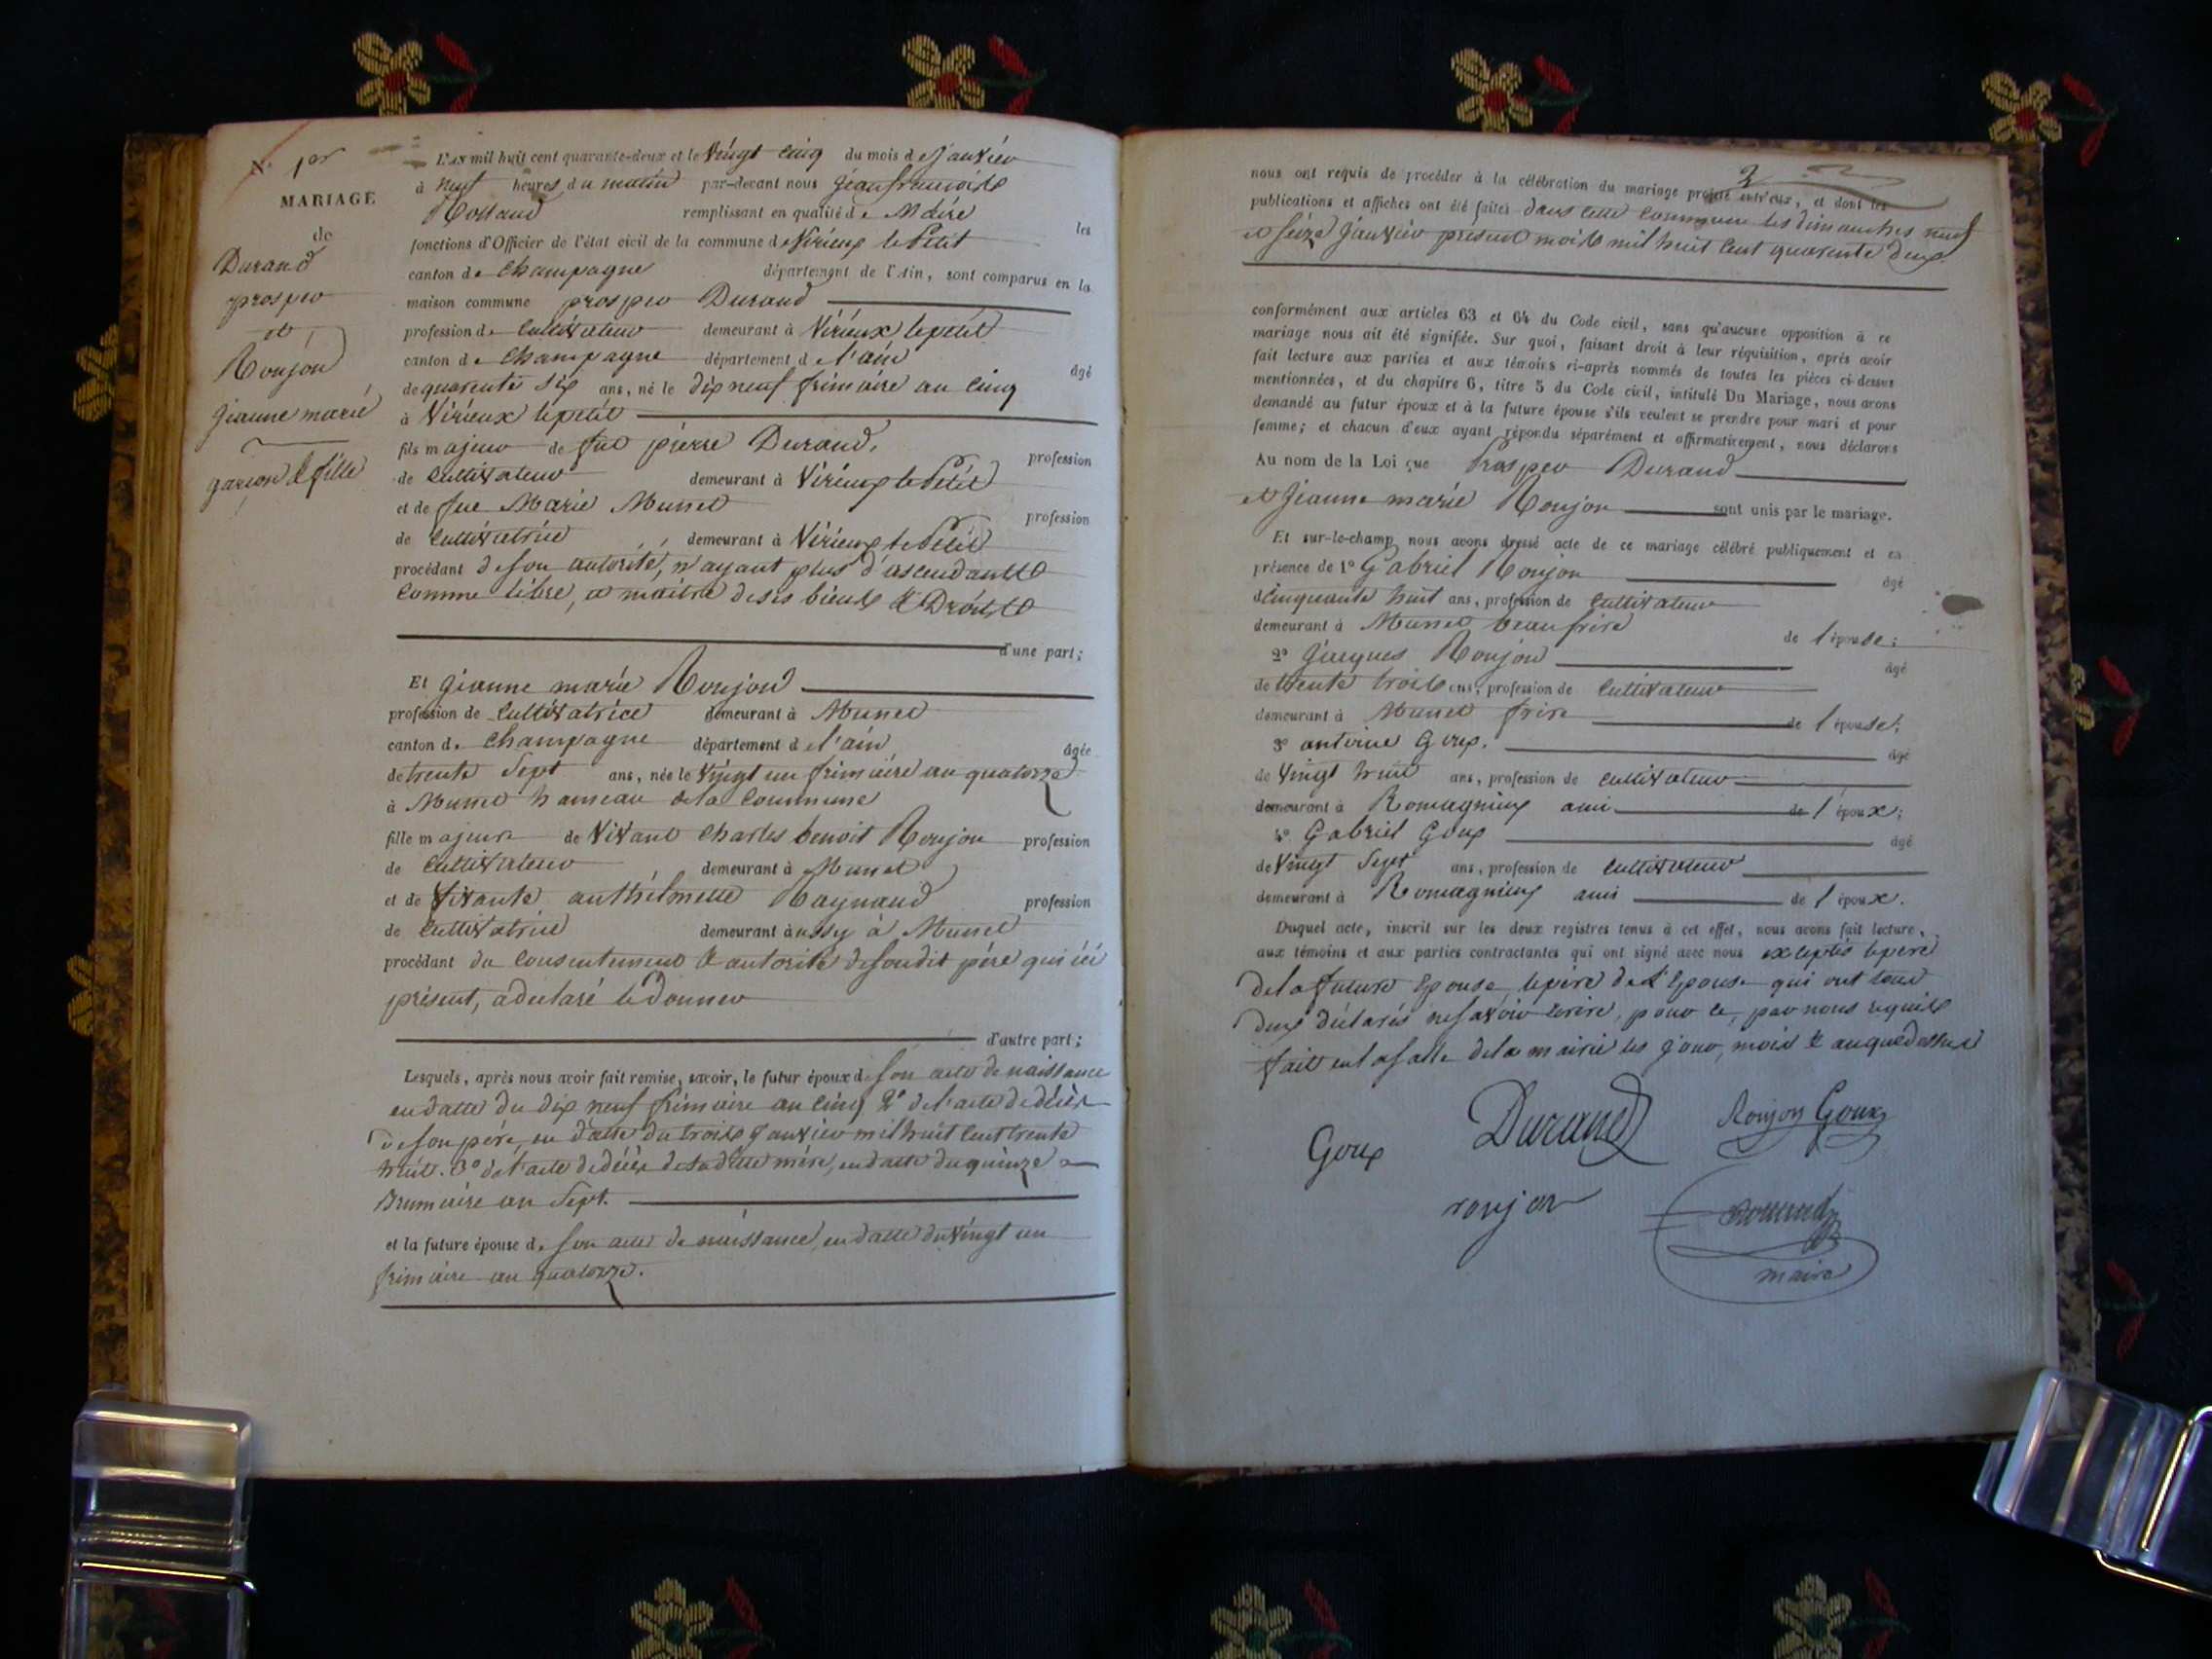 N.° 1er
MARIAGE
de
Durand
prosper
et
Roujon
Jeanne marie
garçon & fille
L'AN mil huit cent quarante-deux et le Vingt cinq du mois de Janvier
à neuf heures du matin par-devant nous Jean francois
Rolland remplissant en qualité de Maire les
fonctions d'Officier de l'état civil de la commune de Virieux le Petit
canton de Champagne département de l'Ain, sont comparus en la
maison commune prosper Durand
profession de Cultivateur demeurant à Virieux le petit
canton de Champagne département de l'ain âgé
de quarente six ans, né le dix neuf frimaire an cinq
à Virieux le petit
fils majeur de feu pierre Durand, profession
de Cultivateur demeurant à Virieux le Petit
et de feue Marie Munet profession
de Cultivatrice demeurant à Virieux le Petit
procédant de son autorité, n'ayant plus d'ascendants
Comme libre, et maitre de ses biens & Droits
d'une part;
Et Jeanne marie Roujon
profession de Cultivatrice demeurant à Munet
canton de Champagne département de l'ain âgée
de trente Sept ans, née le Vingt un frimaire an quatorze
à Munet hameau de la Commune
fille majeure de Vivant Charles benoit Roujon profession
de Cultivateur demeurant à Munet
et de Vivante anthelmette Raynaud profession
de Cultivatrice demeurant aussy à Munet
procédant du Consentement & autorité de son dit père qui ici
présent, a declaré le Donner
d'autre part;
Lesquels, après nous avoir fait remise, savoir, le futur époux de son acte de naissance
en datte du dix neuf frimaire an cinq 2° de l'acte de décès
de son père, en datte du trois Janvier mil huit cent trente
huit. 3° de l'acte de décès de sa dite mère, en datte du quinze
Brumaire an Sept.
et la future épouse de son acte de naissance, en datte du Vingt un
frimaire an quatorze.
2
nous ont requis de procéder à la célébration du mariage projeté entr'eux, et dont les
publications et affiches ont été faites dans cette Commune les dimanches neuf
et seize Janvier present mois mil huit cent quarente deux.
conformément aux articles 63 et 64 du Code civil, sans qu'aucune opposition à ce
mariage nous ait été signifiée. Sur quoi, faisant droit à leur réquisition, après avoir
fait lecture aux parties et aux témoins ci-après nommés de toutes les pièces ci-dessus
mentionnées, et du chapitre 6, titre 5 du Code civil, intitulé Du Mariage, nous avons
demandé au futur époux et à la future épouse s'ils veulent se prendre pour mari et pour
femme; et chacun d'eux ayant répondu séparément et affirmativement, nous déclarons
Au nom de la Loi que Prosper Durand
et Jeanne marie Roujon sont unis par le mariage.
Et sur-le-champ nous avons dressé acte de ce mariage célébré publiquement et en
présence de 1° Gabriel Roujon âgé
de cinquante huit ans, profession de Cultivateur
demeurant à Munet beaufrère de l'épouse;
2° Jacques Roujon âgé
de trente trois ans, profession de Cultivateur
demeurant à Munet frère de l'épouse;
3° antoine Goux. âgé
de Vingt huit ans, profession de Cultivateur
demeurant à Romagnieux ami de l'époux;
4° Gabriel Goux âgé
de Vingt Sept ans, profession de Cultivateur
demeurant à Romagnieux ami de l'époux.
Duquel acte, inscrit sur les deux registres tenus à cet effet, nous avons fait lecture,
aux témoins et aux parties contractantes qui ont signé avec nous exceptés le père
de la future Epouse, le père de l'Epouse qui ont tous
deux déclarés ne savoir écrire, pour ce, par nous requis
fait en la salle de la mairie les jour, mois & an que dessus
Goux Durand Roujon Goux
roujon Rolland
maire